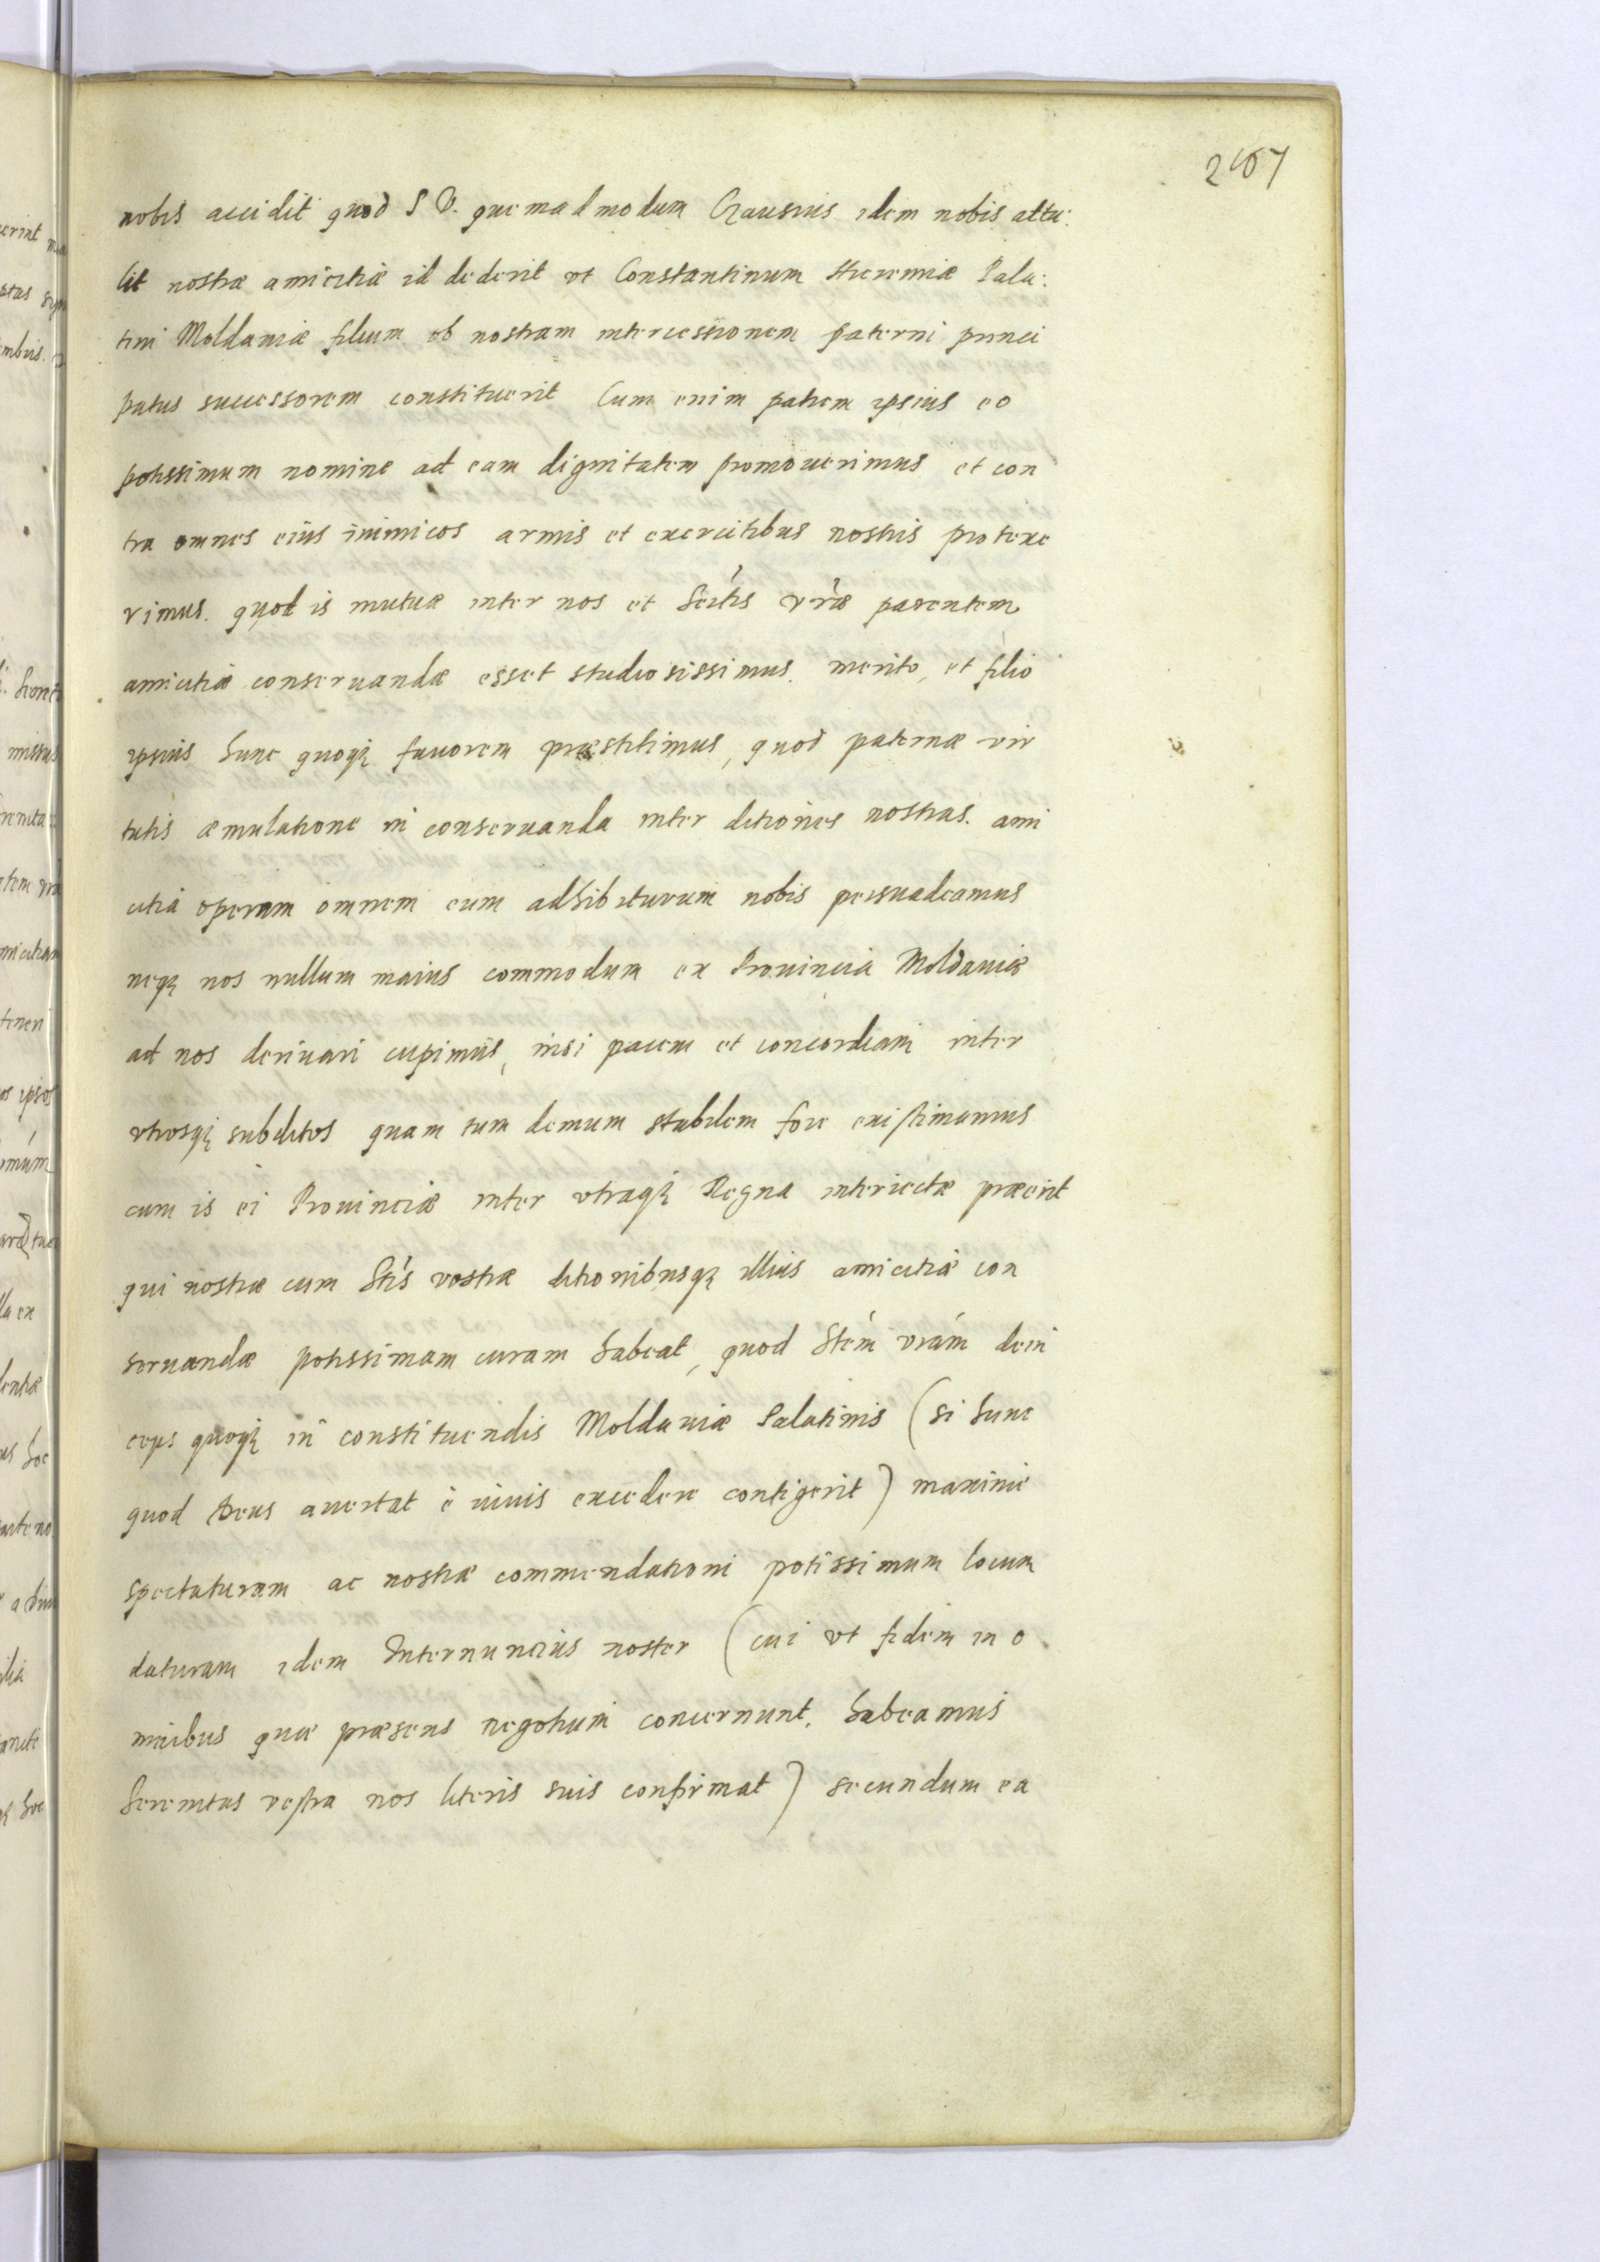 2107
nobis accidit quod S V. quemadmodum Czausius idem nobis attu:
lit nostræ amicitiæ id dederit vt Constantinum Hieremiæ Pala:
tini Moldaviæ filium ob nostram intercessionem paterni princi
patus successorem constituerit Cum enim patrem ipsius eo
potissimum nomine ad eam dignitatem promouerimus et con
tra omnes eius inimicos armis et exercitibus nostris protexe
rimus. quod is mutuæ inter nos et Sertis vræ parentem
amicitiæ conseruandæ esset studiosissimus. merito, et filio
ipsius hunc quoq fauorem præstitimus, quod paternæ vir
tutis æmulatione in conseruanda inter ditiones nostras. ami
citia operam omnem eum adhibiturum nobis persuadeamus
neq nos nullum maius commodum ex Prouincia Moldauiæ
ad nos deriuari cupimus, nisi pacem et concordiam inter
vtrosq subditos quam tum demum stabilem fore existimamus
cum is ei Prouinciæ inter vtraq Regna interiectæ præerit
qui nostræ cum Stis vostræ ditionibusq illius amicitiæ con
seruandæ potissimam curam habeat, quod Stem vram dein
ceps quoq in constituendis Moldauiæ Palatinis (si hunc
quod Deus auertat è viuis excedere contigerit) maxime
spectaturam ac nostræ commendationi potissimum locum
daturam idem Internuncius noster (cui vt fidem in o
mnibus quæ præsens negotium concernunt. habeamus
Serenitas vestra nos literis suis confirmat) secundum ea